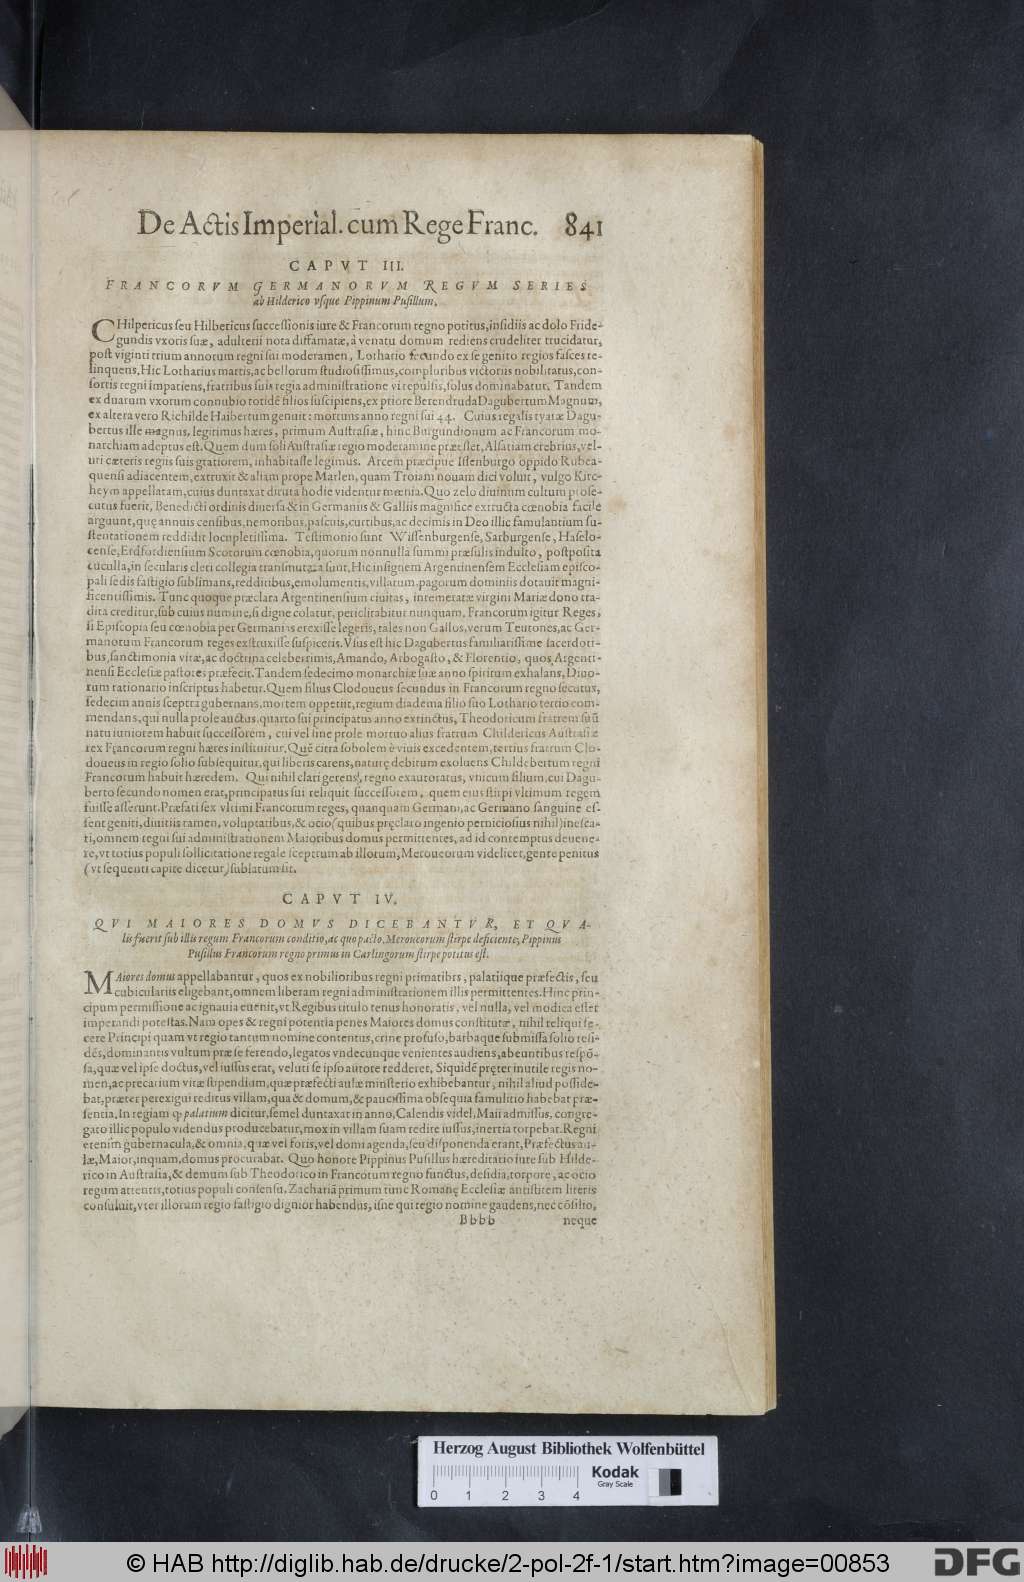 De Actis Imperial. cum Rege Franc. 841
CAPVT III.
FRANCORVM GERMANORVM REGVM SERIES
ab Hilderico vsque Pippinum Pusillum.
CHilpericus seu Hilbericus successionis iure & Francorum regno potitus, insidiis ac dolo Fride-
gundis vxoris suæ, adulterii nota diffamatæ, à venatu domum rediens crudeliter trucidatur,
post viginti trium annorum regni sui moderamen, Lothario secundo ex se genito regios fasces re-
linquens. Hic Lotharius martis, ac bellorum studiosissimus, compluribus victoriis nobilitatus, con-
sortis regni impatiens, fratribus suis regia administratione vi repulsis, solus dominabatur. Tandem
ex duarum vxorum connubio totidē filios suscipiens, ex priore Berendruda Dagubertum Magnum,
ex altera vero Richilde Haibertum genuit: mortuus anno regni sui 44. Cuius regalis tyaræ Dagu-
bertus ille magnus, legitimus hæres, primum Austrasiæ, hinc Burgundionum ac Francorum mo-
narchiam adeptus est. Quem dum soli Austrasiæ regio moderamine præesset, Alsatiam crebrius, vel-
uti cæteris regiis suis gratiorem, inhabitasse legimus. Arcem præcipue Isenburgo oppido Rubea-
quensi adiacentem, extruxit & aliam prope Marlen, quam Troiam nouam dici voluit, vulgo Kirc-
heym appellatam, cuius duntaxat diruta hodie videntur mœnia. Quo zelo diuinum cultum prose-
cutus fuerit, Benedicti ordinis diuersa & in Germaniis & Galliis magnifice extructa cœnobia facile
arguunt, quę annuis censibus, nemoribus, pascuis, curtibus, ac decimis in Deo illic famulantium su-
stentationem reddidit locupletissima. Testimonio sunt Wissenburgense, Sarburgense, Haselo-
cense, Erdfordiensium Scotorum cœnobia, quorum nonnulla summi præsulis indulto, postposita
cuculla, in secularis cleri collegia transmutata sunt. Hic insignem Argentinensem Ecclesiam episco-
pali sedis fastigio sublimans, redditibus, emolumentis, villarum, pagorum dominiis dotauit magni-
ficentissimis. Tunc quoque præclara Argentinensium ciuitas, intemeratæ virgini Mariæ dono tra-
dita creditur, sub cuius numine, si digne colatur, periclitabitur nunquam. Francorum igitur Reges,
si Episcopia seu cœnobia per Germanias erexisse legeris, tales non Gallos, verum Teutones, ac Ger-
manorum Francorum reges exstruxisse suspiceris. Vsus est hic Dagubertus familiarissime sacerdoti-
bus, sanctimonia vitæ, ac doctrina celeberrimis, Amando, Arbogasto, & Florentio, quos Argenti-
nensi Ecclesiæ pastores præfecit. Tandem sedecimo monarchiæ suæ anno spiritum exhalans, Diuo-
rum rationario inscriptus habetur. Quem filius Clodoueus secundus in Francorum regno secutus,
sedecim annis sceptra gubernans, mortem oppetiit, regium diadema filio suo Lothario tertio com-
mendans, qui nulla prole auctus, quarto sui principatus anno extinctus, Theodoricum fratrem suū
natu iuniorem habuit successorem, cui vel sine prole mortuo alius fratrum Childericus Australiæ
rex Francorum regni hæres instituitur. Quē citra sobolem è viuis excedentem, tertius fratrum Clo-
doueus in regio solio subsequitur, qui liberis carens, naturę debitum exoluens Childebertum regni
Francorum habuit hæredem. Qui nihil clari gerens, regno exautoratus, vnicum filium, cui Dagu-
berto secundo nomen erat, principatus sui reliquit successorem, quem eius stirpi vltimum regem
fuisse asserunt. Præfati sex vltimi Francorum reges, quanquam Germani, ac Germano sanguine es-
sent geniti, diuitiis tamen, voluptatibus, & ocio (quibus pręclaro ingenio perniciosius nihil) inesca-
ti, omnem regni sui administrationem Maioribus domus permittentes, ad id contemptus deuene-
re, vt totius populi sollicitatione regale sceptrum ab illorum, Meroueorum videlicet, gente penitus
(vt sequenti capite dicetur) sublatum sit.
CAPVT IV.
QVI MAIORES DOMVS DICEBANTVR, ET QVA-
lis fuerit sub illis regum Francorum conditio, ac quo pacto, Meroueorum stirpe deficiente, Pippinus
Pusillus Francorum regno primus in Carlingorum stirpe potitus est.
MAiores domus appellabantur, quos ex nobilioribus regni primatibus, palatiique præfectis, seu
cubiculariis eligebant, omnem liberam regni administrationem illis permittentes. Hinc prin-
cipum permissione ac ignauia euenit, vt Regibus titulo tenus honoratis, vel nulla, vel modica esset
imperandi potestas. Nam opes & regni potentia penes Maiores domus constitutæ, nihil reliqui fe-
cere Principi quam vt regio tantum nomine contentus, crine profuso, barbaque submissa solio resi-
dēs, dominantis vultum præ se ferendo, legatos vndecunque venientes audiens, abeuntibus respō-
sa, quæ vel ipse doctus, vel iussus erat, veluti se ipso autore redderet. Siquidē pręter inutile regis no-
men, ac precarium vitæ stipendium, quæ præfecti aulæ ministerio exhibebantur, nihil aliud posside-
bat, præter perexigui reditus villam, qua & domum, & paucissima obsequia famulitio habebat præ-
sentia. In regiam qȝ palatium dicitur, semel duntaxat in anno, Calendis videl. Maii admissus, congre-
gato illic populo videndus producebatur, mox in villam suam redire iussus, inertia torpebat. Regni
etenim gubernacula, & omnia, quæ vel foris, vel domi agenda, seu disponenda erant, Præfectus au-
læ, Maior, inquam, domus procurabat. Quo honore Pippinus Pusillus hæreditario iure sub Hilde-
rico in Australia, & demum sub Theodorico in Francorum regno functus, desidia, torpore, ac ocio
regum attentis, totius populi consensu, Zachariā primum tunc Romanę Ecclesiæ antistitem literis
consuluit, vter illorum regio fastigio dignior habendus, isne qui regio nomine gaudens, nec cōsilio,
Bbbb neque
Herzog August Bibliothek Wolfenbüttel
Kodak
Gray Scale
0 1 2 3 4
© HAB http://diglib.hab.de/drucke/2-pol-2f-1/start.htm?image=00853
DFG